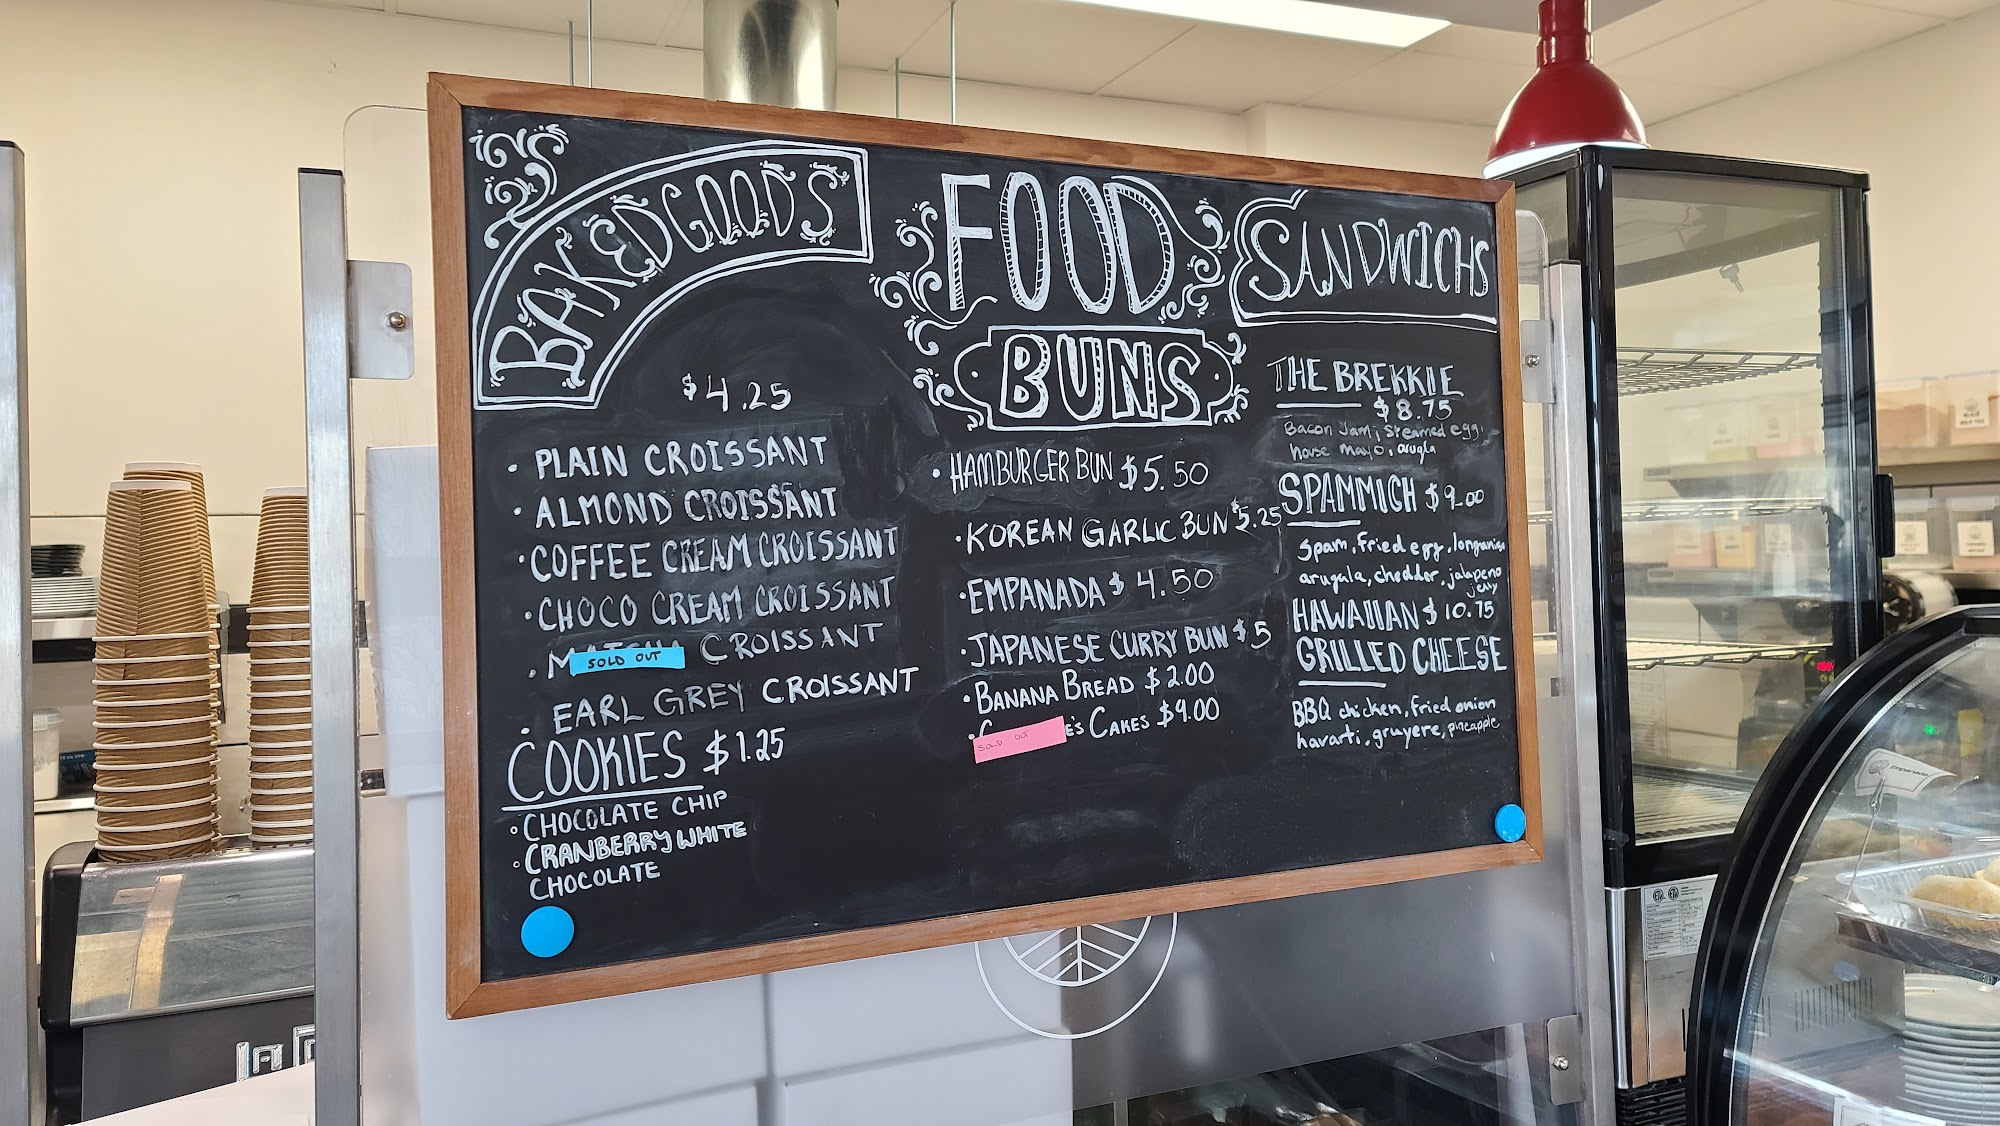 BAKED GOODS
$4.25
• PLAIN CROISSANT
• ALMOND CROISSANT
• COFFEE CREAM CROISSANT
• CHOCO CREAM CROISSANT
• SOLD OUT CROISSANT
• EARL GREY CROISSANT
COOKIES $1.25
• CHOCOLATE CHIP
• CRANBERRY WHITE
CHOCOLATE
FOOD
BUNS
• HAMBURGER BUN $5.50
• KOREAN GARLIC BUN $5.25
• EMPANADA $4.50
• JAPANESE CURRY BUN $5
• BANANA BREAD $2.00
• SOLD OUT E'S CAKES $9.00
SANDWICHS
THE BREKKIE
$8.75
Bacon Jam, Steamed egg,
house mayo, arugla
SPAMMICH $9.00
Spam, fried egg, longanisa
arugala, cheddar, jalapeno
HAWAIIAN $10.75
GRILLED CHEESE
BBQ chicken, fried onion
havarti, gruyere, pineapple